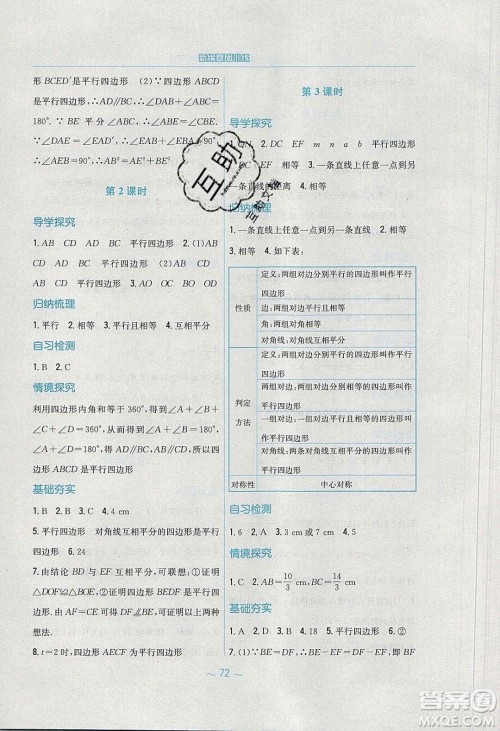 新编基础训练
形 BCED′是平行四边形 (2)∵四边形 ABCD
是平行四边形,∴AD∥BC,∴∠DAB+∠CBA=
180°. ∵ BE 平分 ∠ABC, ∴ ∠ABE = ∠CBE,
第 2 课时
导学探究
1. AB CD AD BC 平行四边形 2. (1)
AB CD AD BC AO OC BO OD
归纳梳理
1. 平行 2. 相等 3. 相等 4. 互相平分
自习检测
1. B 2. C
情境探究
利用四边形内角和等于 360°,得∠A+∠B+
∠C+∠D=360°,∴∠A+∠B=180°,∠A+
∠D=180°,∴AD∥BC,AB∥CD,所以,四边
形 ABCD 是平行四边形
基础夯实
1. B 2. B 3. C 4. 4 cm
5. 平行四边形 对角线互相平分的四边形是平
行四边形 6. 24
7. 由结论 BD 与 EF 互相平分,可联想:①证明
△DOF≌△BOE,②证明四边形 BEDF 是平行
四边形. 由 AF=CE 可得 DF∥BE,DF=BE,
可证明四边形 BEDF 是平行四边形,可证明以上两种
想法.
8. t=2 时,四边形 AECF 为平行四边形
第 3 课时
导学探究
1. QN DC EF m n a b 平行四边形
归纳梳理
1. 一条直线上任意一点到另一条直线 2. 相等
3. 相等 4. 如下表:
性质
定义:两组对边分别平行的四边形叫作平行
四边形
边:两组对边平行且相等
角:两组对角相等
对角线:对角线互相平分
判定
方法
定义:两组对边分别平行的四边形叫作平行
四边形
一组对边平行且相等的四边形叫作平行四
边形
两组对边:两组对边分别相等的四边形叫作
平行四边形
对角线:对角线互相平分的四边形叫作平行
四边形
对称性
中心对称
自习检测
1. 6 2. A 3. 3 cm 或 7 cm 4. 5
情境探究
1. C 2. AB=10/3 cm,BC=14/3 cm
基础夯实
1. B 2. B 3. C 4. 18 5. 平行四边形 6. ②
7. (1)∵BE=DF,∴BE−EF=DF−EF,即 BF
～ 72 ～
互助
互助文库
答案圈
MXQE.COM